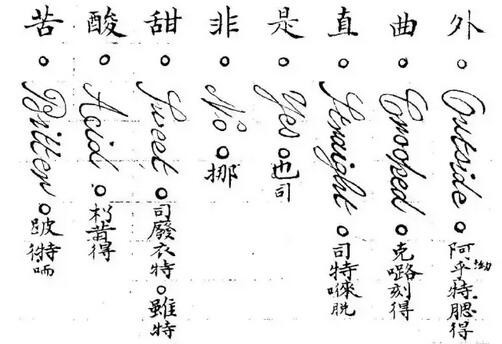 外 ○ Outside ○ 阿乎特腮得
曲 ○ Crooked ○ 克刻得
直 ○ Straight ○ 司特唻脫
是 ○ Yes ○ 也司
非 ○ No ○ 挪
甜 ○ Sweet ○ 司廢衣特 ○ 雖特
酸 ○ Acid ○ 昔得
苦 ○ Bitter ○ 跛特